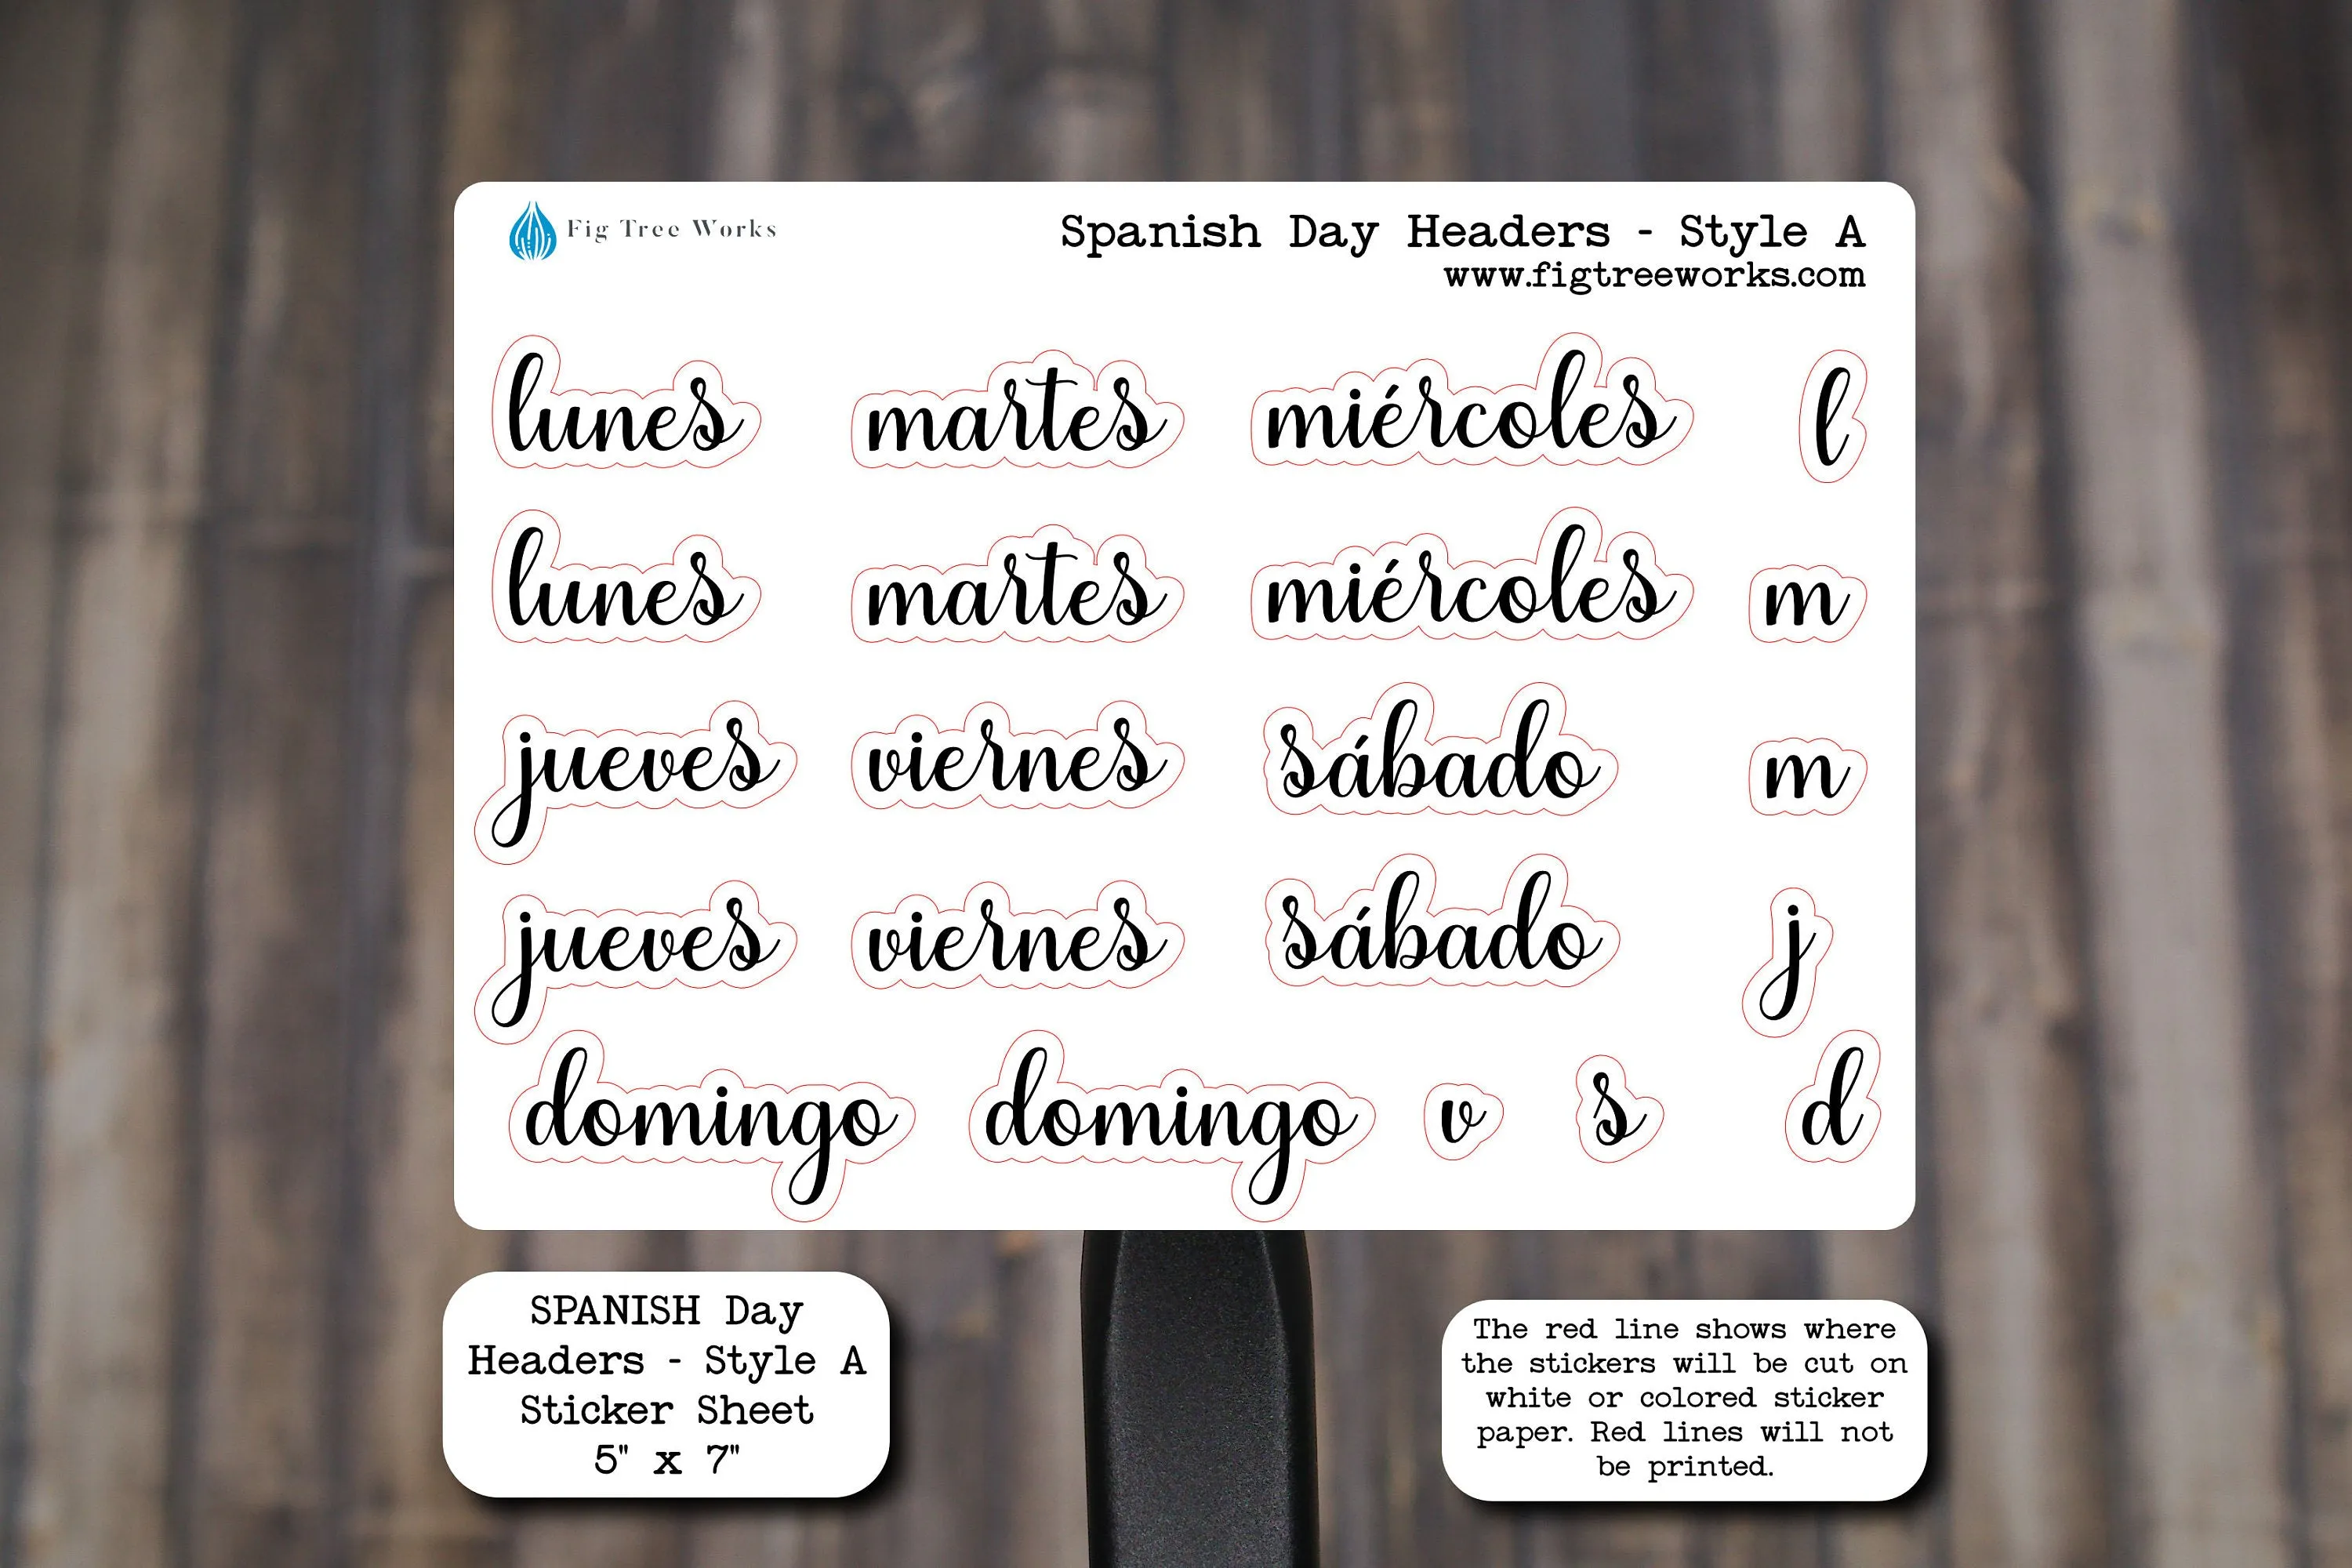 Fig Tree Works
Spanish Day Headers - Style A
www.figtreeworks.com
lunes martes miércoles l
lunes martes miércoles m
jueves viernes sábado m
jueves viernes sábado j
domingo domingo v s d
SPANISH Day
Headers - Style A
Sticker Sheet
5" x 7"
The red line shows where
the stickers will be cut on
white or colored sticker
paper. Red lines will not
be printed.